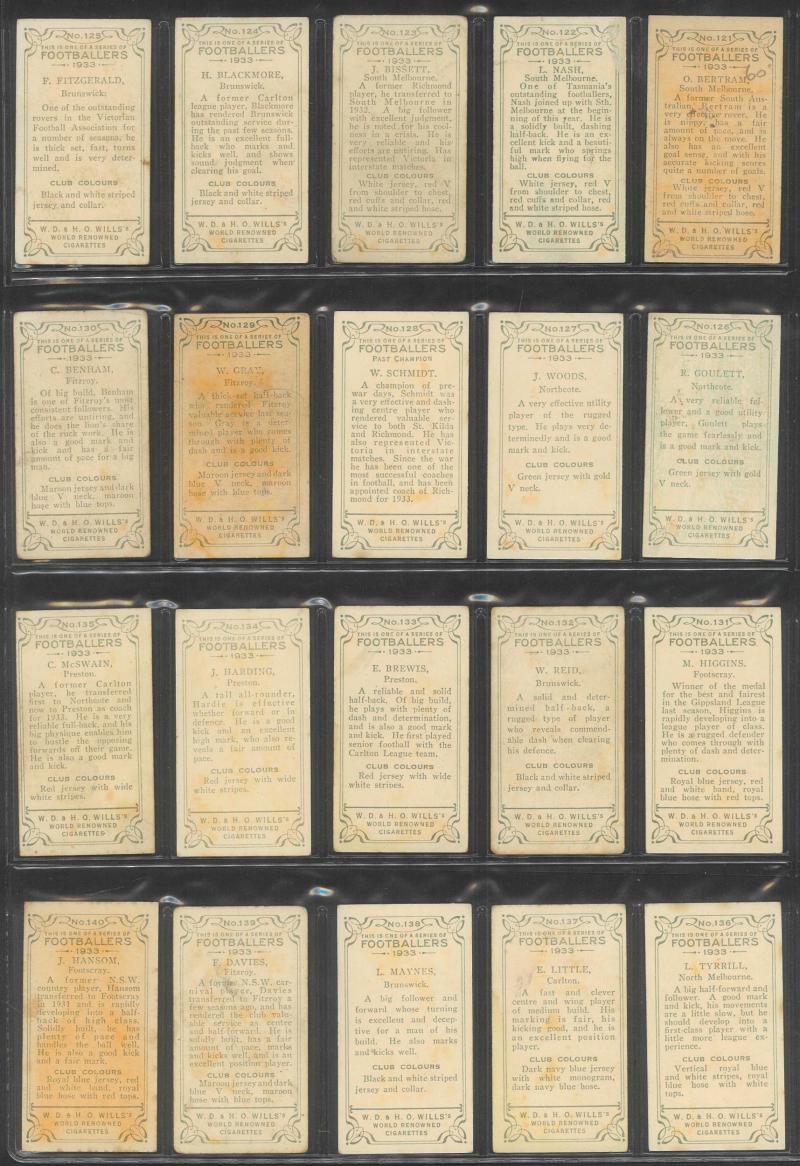 No. 125
THIS IS ONE OF A SERIES OF
FOOTBALLERS
1933
F. FITZGERALD,
Brunswick.
One of the outstanding
rovers in the Victorian
Football Association for
a number of seasons, he
is thick set, fast, turns
well and is very deter-
mined.
CLUB COLOURS
Black and white striped
jersey and collar.
W. D. & H. O. WILLS's
WORLD RENOWNED
CIGARETTES
No. 124
THIS IS ONE OF A SERIES OF
FOOTBALLERS
1933
H. BLACKMORE,
Brunswick.
A former Carlton
league player, Blackmore
has rendered Brunswick
outstanding service dur-
ing the past few seasons.
He is an excellent full-
back who marks and
kicks well, and shows
sound judgment when
clearing his goal.
CLUB COLOURS
Black and white striped
jersey and collar.
W. D. & H. O. WILLS's
WORLD RENOWNED
CIGARETTES
No. 123
THIS IS ONE OF A SERIES OF
FOOTBALLERS
1933
J. BISSETT,
South Melbourne.
A former Richmond
player, he transferred to
South Melbourne in
1932. A big follower
with excellent judgment,
he is noted for his cool-
ness in a crisis. He is
very reliable and his
efforts are untiring. Has
represented Victoria in
interstate matches.
CLUB COLOURS
White jersey, red V
from shoulder to chest,
red cuffs and collar, red
and white striped hose.
W. D. & H. O. WILLS's
WORLD RENOWNED
CIGARETTES
No. 122
THIS IS ONE OF A SERIES OF
FOOTBALLERS
1933
L. NASH,
South Melbourne.
One of Tasmania's
outstanding footballers,
Nash joined up with Sth.
Melbourne at the begin-
ning of this year. He is
a solidly built, dashing
half-back. He is an ex-
cellent kick and a beauti-
ful mark who springs
high when flying for the
ball.
CLUB COLOURS
White jersey, red V
from shoulder to chest,
red cuffs and collar, red
and white striped hose.
W. D. & H. O. WILLS's
WORLD RENOWNED
CIGARETTES
No. 121
THIS IS ONE OF A SERIES OF
FOOTBALLERS
1933
O. BERTRAM,
South Melbourne.
A former South Aus-
tralian, Bertram is a
very effective rover. He
is nippy, has a fair
amount of pace, and is
always on the move. He
also has an excellent
goal sense, and with his
accurate kicking scores
quite a number of goals.
CLUB COLOURS
White jersey, red V
from shoulder to chest,
red cuffs and collar, red
and white striped hose.
W. D. & H. O. WILLS's
WORLD RENOWNED
CIGARETTES
No. 130
THIS IS ONE OF A SERIES OF
FOOTBALLERS
1933
C. BENHAM,
Fitzroy.
Of big build, Benham
is one of Fitzroy's most
consistent followers. His
efforts are untiring, and
he does the lion's share
of the ruck work. He is
also a good mark and
kick and has a fair
amount of pace for a big
man.
CLUB COLOURS
Maroon jersey and dark
blue V neck, maroon
hose with blue tops.
W. D. & H. O. WILLS's
WORLD RENOWNED
CIGARETTES
No. 129
THIS IS ONE OF A SERIES OF
FOOTBALLERS
1933
W. GRAY,
Fitzroy.
A thick-set half-back
who rendered Fitzroy
valuable service last sea-
son. Gray is a deter-
mined player who comes
through with plenty of
dash and is a good kick.
CLUB COLOURS
Maroon jersey and dark
blue V neck, maroon
hose with blue tops.
W. D. & H. O. WILLS's
WORLD RENOWNED
CIGARETTES
No. 128
THIS IS ONE OF A SERIES OF
FOOTBALLERS
PAST CHAMPION
W. SCHMIDT.
A champion of pre-
war days, Schmidt was
a very effective and dash-
ing centre player who
rendered valuable ser-
vice to both St. Kilda
and Richmond. He has
also represented Vic-
toria in interstate
matches. Since the war
he has been one of the
most successful coaches
in football, and has been
appointed coach of Rich-
mond for 1933.
W. D. & H. O. WILLS's
WORLD RENOWNED
CIGARETTES
No. 127
THIS IS ONE OF A SERIES OF
FOOTBALLERS
1933
J. WOODS,
Northcote.
A very effective utility
player of the rugged
type. He plays very de-
terminedly and is a good
mark and kick.
CLUB COLOURS
Green jersey with gold
V neck.
W. D. & H. O. WILLS's
WORLD RENOWNED
CIGARETTES
No. 126
THIS IS ONE OF A SERIES OF
FOOTBALLERS
1933
R. GOULETT,
Northcote.
A very reliable fol-
lower and a good utility
player, Goulett plays
the game fearlessly and
is a good mark and kick.
CLUB COLOURS
Green jersey with gold
V neck.
W. D. & H. O. WILLS's
WORLD RENOWNED
CIGARETTES
No. 135
THIS IS ONE OF A SERIES OF
FOOTBALLERS
1933
C. McSWAIN,
Preston.
A former Carlton
player, he transferred
first to Northcote and
now to Preston as coach
for 1933. He is a very
reliable full-back, and his
big physique enables him
to hustle the opposing
forwards off their game.
He is also a good mark
and kick.
CLUB COLOURS
Red jersey with wide
white stripes.
W. D. & H. O. WILLS's
WORLD RENOWNED
CIGARETTES
No. 134
THIS IS ONE OF A SERIES OF
FOOTBALLERS
1933
J. HARDING,
Preston.
A tall all-rounder,
Hardie is effective
whether forward or in
defence. He is a good
kick and an excellent
high mark, who also re-
veals a fair amount of
pace.
CLUB COLOURS
Red jersey with wide
white stripes.
W. D. & H. O. WILLS's
WORLD RENOWNED
CIGARETTES
No. 133
THIS IS ONE OF A SERIES OF
FOOTBALLERS
1933
E. BREWIS,
Preston.
A reliable and solid
half-back. Of big build,
he plays with plenty of
dash and determination,
and is also a good mark
and kick. He first played
senior football with the
Carlton League team.
CLUB COLOURS
Red jersey with wide
white stripes.
W. D. & H. O. WILLS's
WORLD RENOWNED
CIGARETTES
No. 132
THIS IS ONE OF A SERIES OF
FOOTBALLERS
1933
W. REID,
Brunswick.
A solid and deter-
mined half-back, a
rugged type of player
who reveals commend-
able dash when clearing
his defence.
CLUB COLOURS
Black and white striped
jersey and collar.
W. D. & H. O. WILLS's
WORLD RENOWNED
CIGARETTES
No. 131
THIS IS ONE OF A SERIES OF
FOOTBALLERS
1933
M. HIGGINS.
Footscray.
Winner of the medal
for the best and fairest
in the Gippsland League
last season, Higgins is
rapidly developing into a
league player of class.
He is a rugged defender
who comes through with
plenty of dash and deter-
mination.
CLUB COLOURS
Royal blue jersey, red
and white band, royal
blue hose with red tops.
W. D. & H. O. WILLS's
WORLD RENOWNED
CIGARETTES
No. 140
THIS IS ONE OF A SERIES OF
FOOTBALLERS
1933
J. HANSOM,
Footscray.
A former N.S.W.
country player, Hansom
transferred to Footscray
in 1931 and is rapidly
developing into a half-
back of high class.
Solidly built, he has
plenty of pace and
handles the ball well.
He is also a good kick
and a fair mark.
CLUB COLOURS
Royal blue jersey, red
and white band, royal
blue hose with red tops.
W. D. & H. O. WILLS's
WORLD RENOWNED
CIGARETTES
No. 139
THIS IS ONE OF A SERIES OF
FOOTBALLERS
1933
F. DAVIES,
Fitzroy.
A former N.S.W. car-
nival player, Davies
transferred to Fitzroy a
few seasons ago, and has
rendered the club valu-
able service as centre
and half-forward. He is
solidly built, has a fair
amount of pace, marks
and kicks well, and is an
excellent position player.
CLUB COLOURS
Maroon jersey and dark
blue V neck, maroon
hose with blue tops.
W. D. & H. O. WILLS's
WORLD RENOWNED
CIGARETTES
No. 138
THIS IS ONE OF A SERIES OF
FOOTBALLERS
1933
L. MAYNES,
Brunswick.
A big follower and
forward whose turning
is excellent and decep-
tive for a man of his
build. He also marks
and kicks well.
CLUB COLOURS
Black and white striped
jersey and collar.
W. D. & H. O. WILLS's
WORLD RENOWNED
CIGARETTES
No. 137
THIS IS ONE OF A SERIES OF
FOOTBALLERS
1933
E. LITTLE,
Carlton.
A fast and clever
centre and wing player
of medium build. His
marking is fair, his
kicking good, and he is
an excellent position
player.
CLUB COLOURS
Dark navy blue jersey
with white monogram,
dark navy blue hose.
W. D. & H. O. WILLS's
WORLD RENOWNED
CIGARETTES
No. 136
THIS IS ONE OF A SERIES OF
FOOTBALLERS
1933
L. TYRRILL,
North Melbourne.
A big half-forward and
follower. A good mark
and kick, his movements
are a little slow, but he
should develop into a
first-class player with a
little more league ex-
perience.
CLUB COLOURS
Vertical royal blue
and white stripes, royal
blue hose with white
tops.
W. D. & H. O. WILLS's
WORLD RENOWNED
CIGARETTES